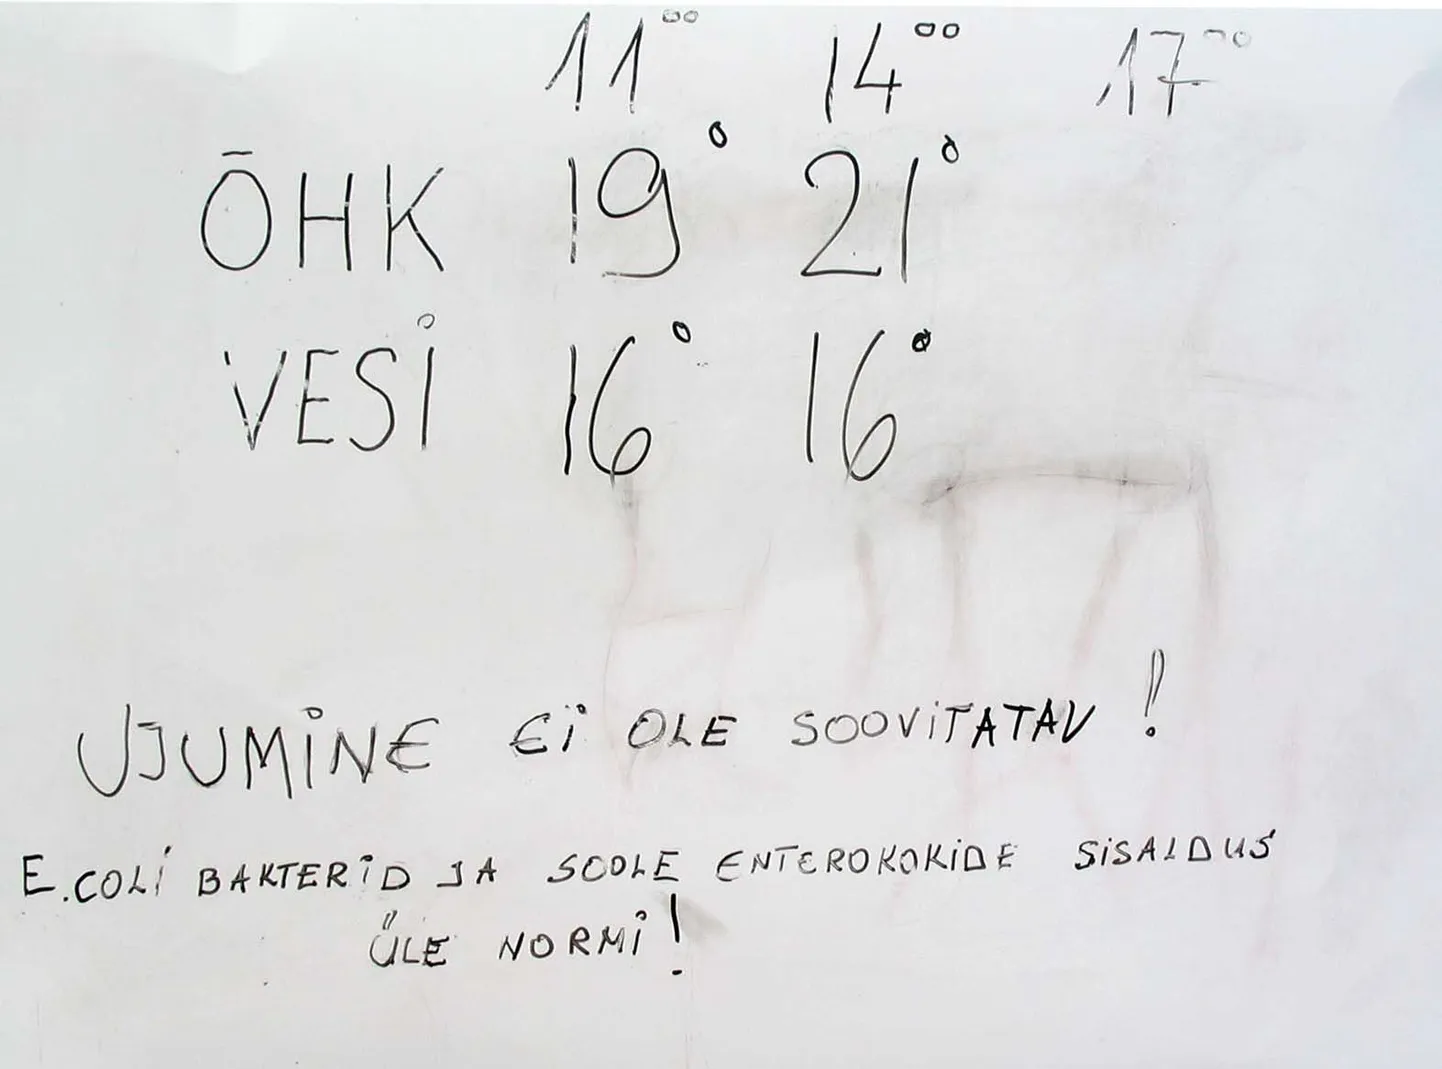 11⁰⁰ 14⁰⁰ 17⁰⁰
ÕHK 19° 21°
VESI 16° 16°
UJUMINE EI OLE SOOVITATAV!
E.COLI BAKTERID JA SOOLE ENTEROKOKIDE SISALDUS
ÜLE NORMI!